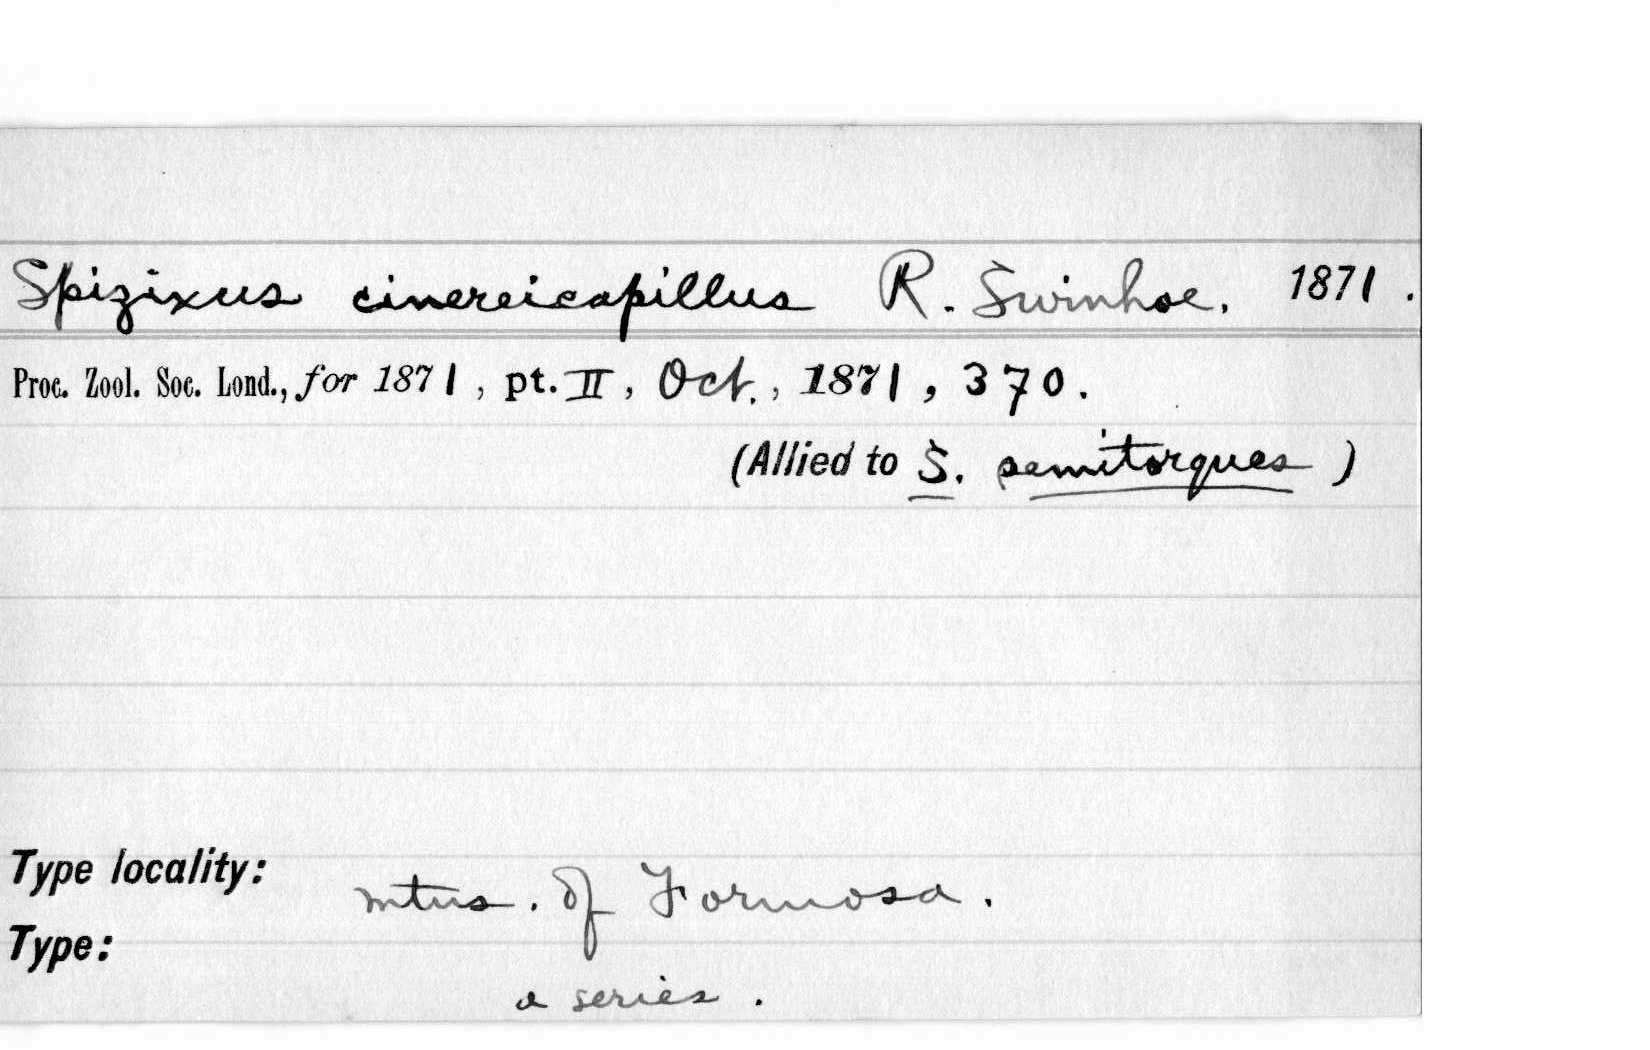 Spizixus cinereicapillus R. Swinhoe. 1871.
Proc. Zool. Soc. Lond., for 1871, pt. II, Oct., 1871, 370.
(Allied to S. semitorques)
Type locality:
mtns. of Formosa.
Type:
a series.